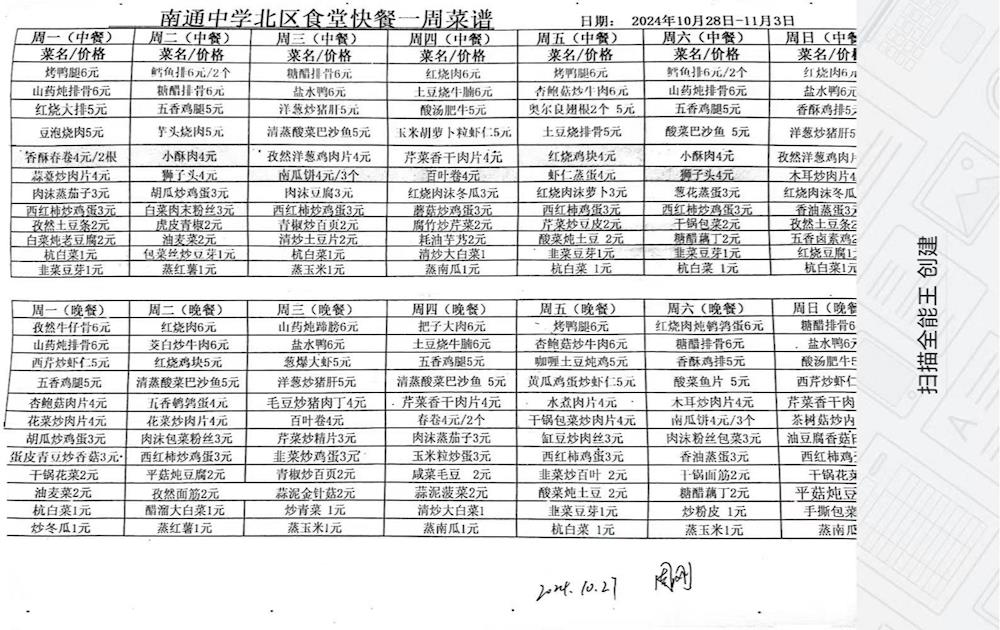 南通中学北区食堂快餐一周菜谱 日期： 2024年10月28日-11月3日
周一（中餐） 周二（中餐） 周三（中餐） 周四（中餐） 周五（中餐） 周六（中餐） 周日（中餐
菜名/价格 菜名/价格 菜名/价格 菜名/价格 菜名/价格 菜名/价格 菜名/价格
烤鸭腿6元 鳕鱼排6元/2个 糖醋排骨6元 红烧肉6元 烤鸭腿6元 鳕鱼排6元/2个 红烧肉6元
山药炖排骨6元 糖醋排骨6元 盐水鸭6元 土豆烧牛腩6元 杏鲍菇炒牛肉6元 山药炖排骨6元 盐水鸭6元
红烧大排5元 五香鸡腿5元 洋葱炒猪肝5元 酸汤肥牛5元 奥尔良翅根2个 5元 五香鸡腿5元 香酥鸡排5元
豆泡烧肉5元 芋头烧肉5元 清蒸酸菜巴沙鱼5元 玉米胡萝卜粒虾仁5元 土豆烧排骨5元 酸菜巴沙鱼 5元 洋葱炒猪肝5
香酥春卷4元/2根 小酥肉4元 孜然洋葱鸡肉片4元 芹菜香干肉片4元 红烧鸡块4元 小酥肉4元 孜然洋葱鸡肉片
蒜薹炒肉片4元 狮子头4元 南瓜饼4元/3个 百叶卷4元 虾仁蒸蛋4元 狮子头4元 木耳炒肉片4
肉沫蒸茄子3元 胡瓜炒鸡蛋3元 肉沫豆腐3元 红烧肉沫冬瓜3元 红烧肉沫萝卜3元 葱花蒸蛋3元 红烧肉沫冬瓜
西红柿炒鸡蛋3元 白菜肉末粉丝3元 西红柿炒鸡蛋3元 蘑菇炒鸡蛋3元 西红柿炒鸡蛋3元 西红柿炒鸡蛋3元 香油蒸蛋3元
孜然土豆条2元 虎皮青椒2元 青椒炒百页2元 腐竹炒芹菜2元 芹菜炒豆皮2元 干锅包菜2元 孜然土豆条2
白菜炖老豆腐2元 油麦菜2元 清炒土豆片2元 耗油芋艿2元 酸菜炖土豆 2元 糖醋藕丁2元 五香卤素鸡2
杭白菜1元 包菜丝炒豆芽1元 杭白菜1元 清炒大白菜1 韭菜豆芽1元 韭菜豆芽1元 红烧豆腐1
韭菜豆芽1元 蒸红薯1元 蒸玉米1元 蒸南瓜1元 杭白菜 1元 杭白菜 1元 杭白菜1元
周一（晚餐） 周二（晚餐） 周三（晚餐） 周四（晚餐） 周五（晚餐） 周六（晚餐） 周日（晚餐
孜然牛仔骨6元 红烧肉6元 山药炖蹄膀6元 把子大肉6元 烤鸭腿6元 红烧肉炖鹌鹑蛋6元 糖醋排骨6
山药炖排骨6元 茭白炒牛肉6元 盐水鸭6元 土豆烧牛腩6元 杏鲍菇炒牛肉6元 糖醋排骨6元 盐水鸭6元
西芹炒虾仁5元 红烧鸡块5元 葱爆大虾5元 五香鸡腿5元 咖喱土豆炖鸡5元 香酥鸡排5元 酸汤肥牛5
五香鸡腿5元 清蒸酸菜巴沙鱼5元 洋葱炒猪肝5元 清蒸酸菜巴沙鱼 5元 黄瓜鸡蛋炒虾仁5元 酸菜鱼片 5元 西芹炒虾仁
杏鲍菇肉片4元 五香鹌鹑蛋4元 毛豆炒猪肉丁4元 芹菜香干肉片4元 水煮肉片4元 木耳炒肉片4元 芹菜香干肉
花菜炒肉片4元 花菜炒肉片4元 百叶卷4元 春卷4元/2个 干锅包菜炒肉片4元 南瓜饼4元/3个 茶树菇炒肉
胡瓜炒鸡蛋3元 肉沫包菜粉丝3元 芹菜炒精片3元 肉沫蒸茄子3元 缸豆炒肉丝3元 肉沫粉丝包菜3元 油豆腐香菇
蛋皮青豆炒香菇3元 西红柿炒鸡蛋3元 韭菜炒鸡蛋3元 玉米粒炒蛋3元 西红柿炒鸡蛋3元 香油蒸蛋3元 西红柿鸡
干锅花菜2元 平菇炖豆腐2元 青椒炒百页2元 咸菜毛豆 2元 韭菜炒百叶 2元 干锅面筋2元 干锅花
油麦菜2元 孜然面筋2元 蒜泥金针菇2元 蒜泥菠菜2元 酸菜炖土豆 2元 糖醋藕丁2元 平菇炖豆
杭白菜1元 醋溜大白菜1元 炒青菜 1元 清炒大白菜1 韭菜豆芽1元 炒粉皮 1元 手撕包菜
炒冬瓜1元 蒸红薯1元 蒸玉米1元 蒸南瓜1元 杭白菜 1元 蒸玉米1元 蒸南瓜
2024.10.27 周刚
扫描全能王 创建